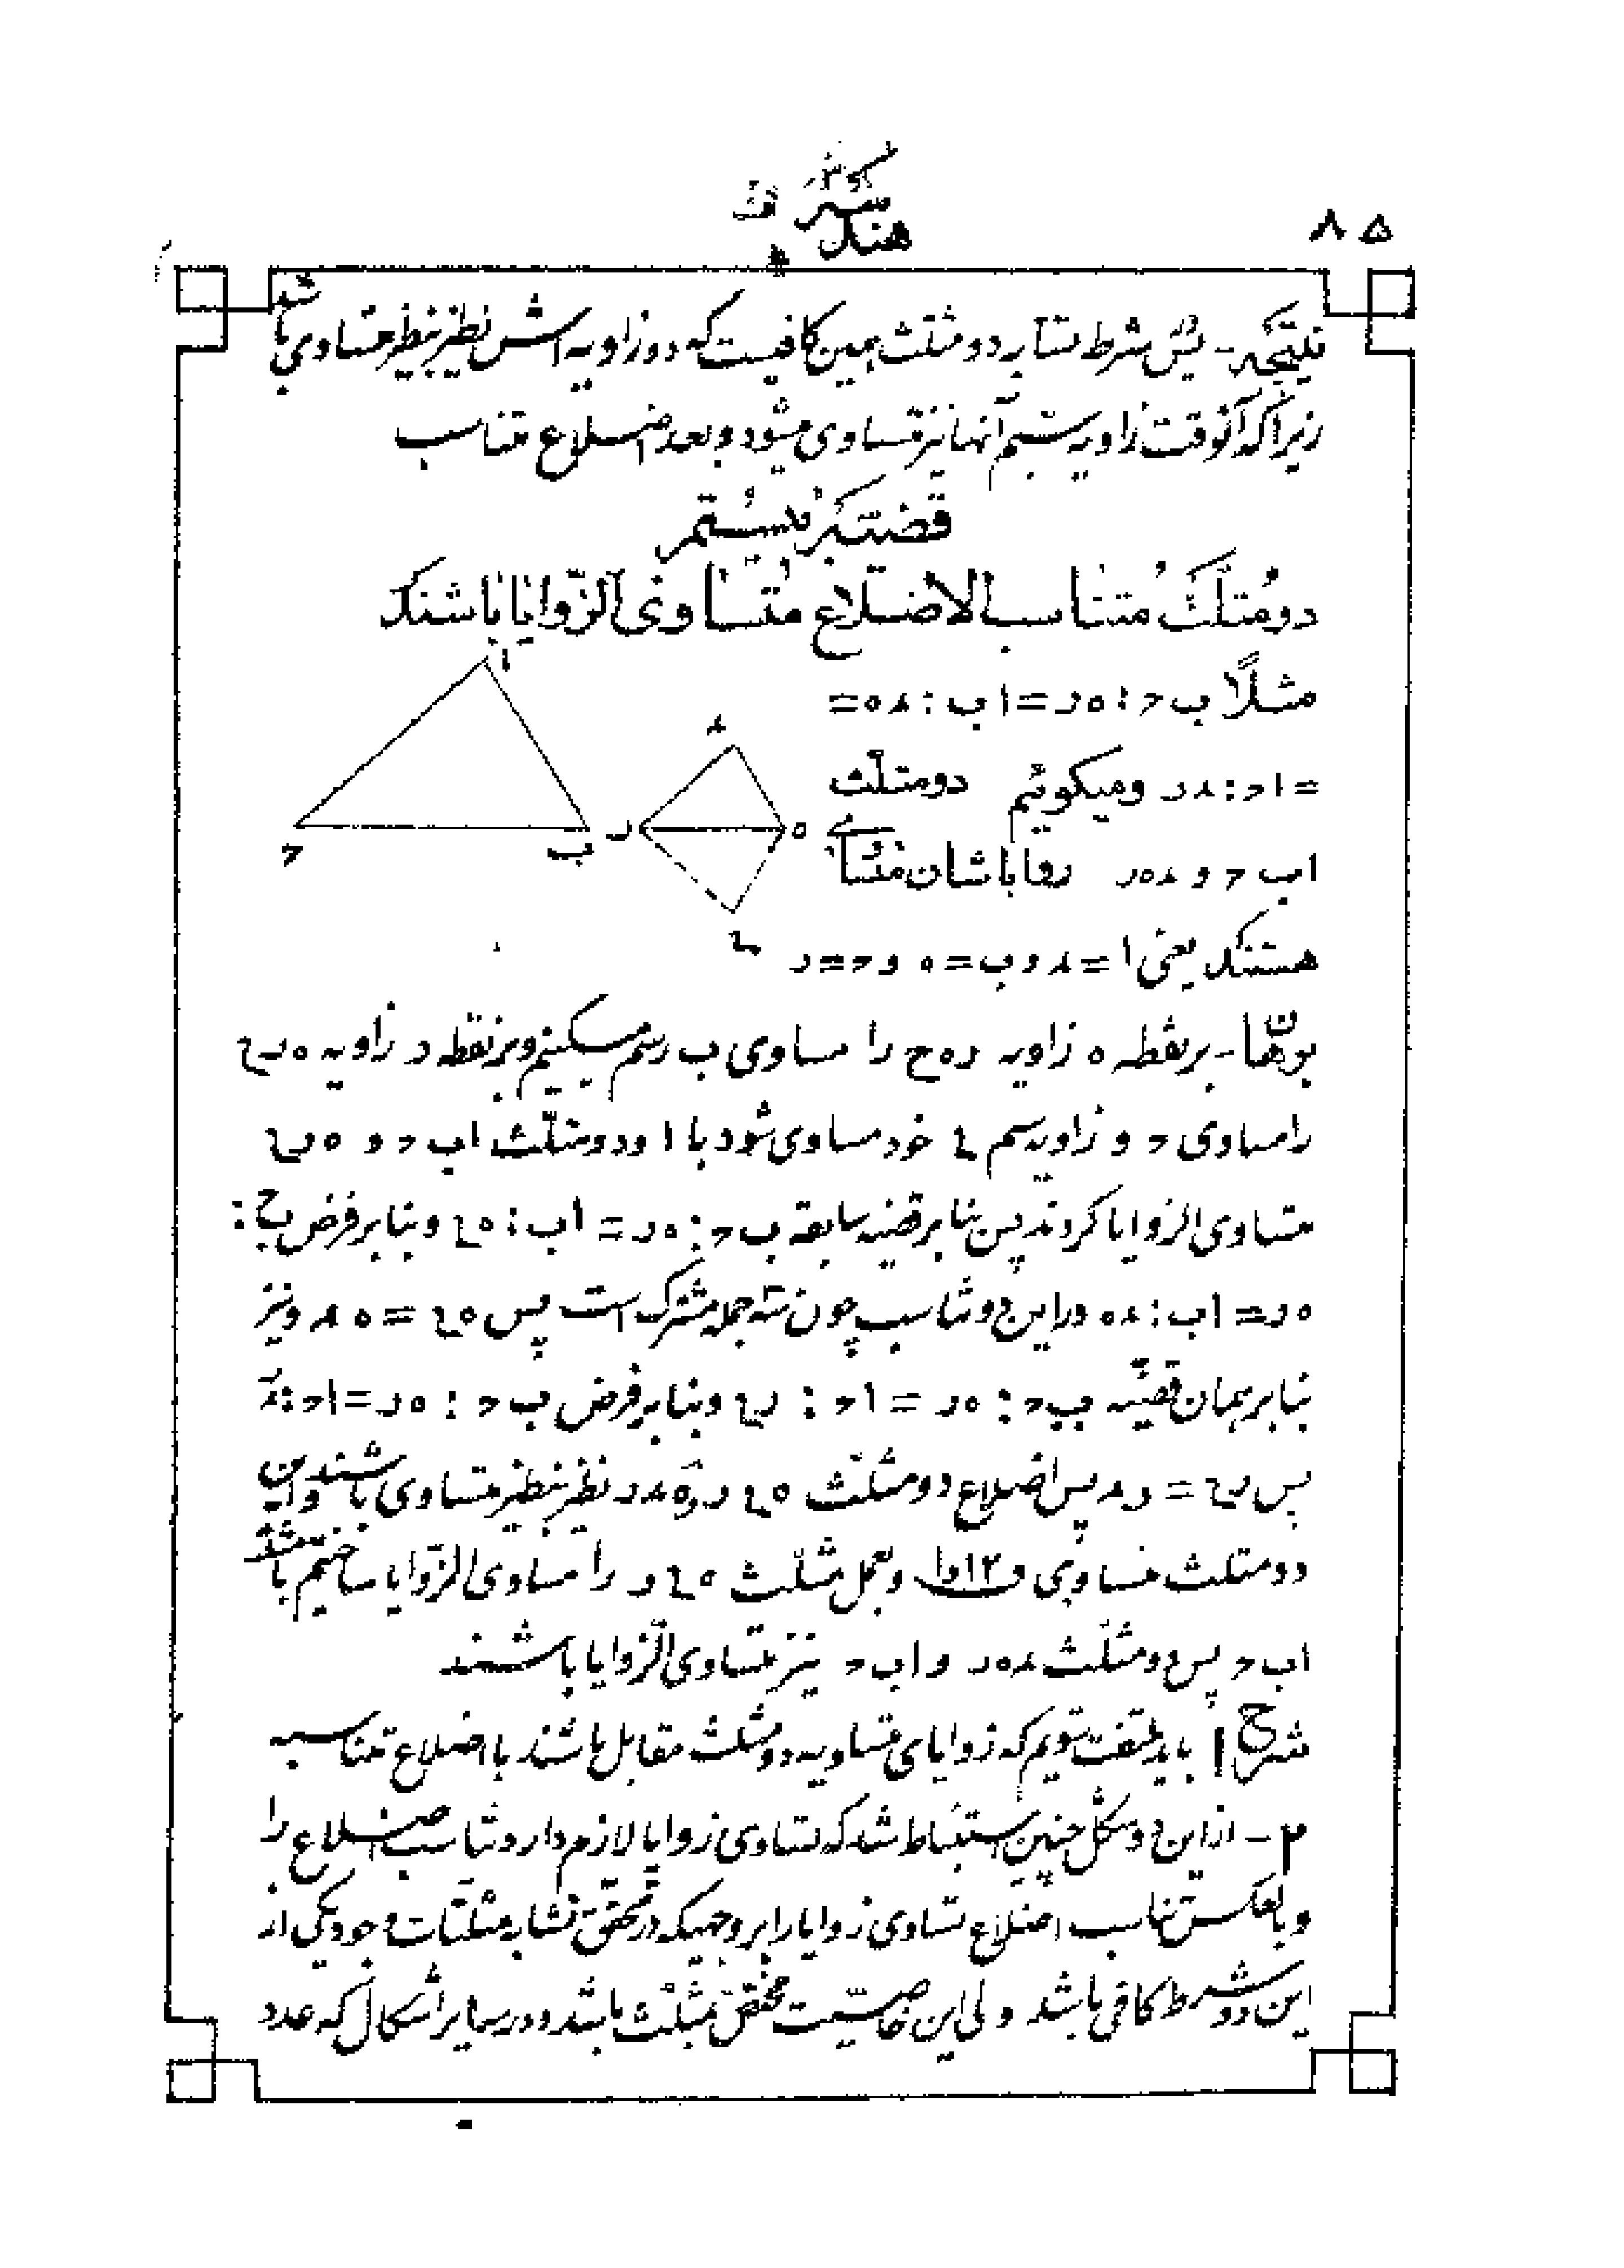 ۸۵
هندسه
نتیجه - پس شرط تشابه دو مثلث همین کافیست که دو زاویه اش نظیر بنظیر متساوی باشد
زیرا که آنوقت زاویه سیم آنها نیز متساوی میشود و بعد اضلاع متناسب
قضیه بیستم
دو مثلث متناسب الاضلاع متساوی الزوایا باشند
مثلاً ب ح : ه ر = ا ب : د ه =
= ا ح : د ر و میگوئیم دو مثلث
ا ب ح و د ه ر زوایاشان متساوی
هستند یعنی ا = د و ب = ه و ح = ر
برهان - بر نقطه ه زاویه ر ه ح را مساوی ب رسم میکنیم و بر نقطه ر زاویه ه ر ح
را مساوی ح و زاویه سیم ح خود مساوی شود با ا و دو مثلث ا ب ح و ه ر ح
متساوی الزوایا کردند پس بنا بر قضیه سابقه ب ح : ه ر = ا ب : ه ح و بنا بر فرض ب ح :
ه ر = ا ب : د ه و در این دو تناسب چون سه جمله مشترک است پس ه ح = ه د و نیز
بنا بر همان قضیه ب ح : ه ر = ا ح : ر ح و بنا بر فرض ب ح : ه ر = ا ح : د ر
پس ر ح = ر د پس اضلاع دو مثلث ه ح ر و ه د ر نظیر بنظیر متساوی باشند و این
دو مثلث متساوی و بعمل مثلث ه ح ر را متساوی الزوایا ساختیم با مثلث
ا ب ح پس دو مثلث د ه ر و ا ب ح نیز متساوی الزوایا باشند
شرح ۱ باید ملتفت شویم که زوایای متساویه دو مثلث مقابل باشند با اضلاع متناسبه
۲ - از این دو شکل چنین استنباط شد که تساوی زوایا لازم دارد تناسب اضلاع را
و بالعکس تناسب اضلاع تساوی زوایا را بر وجهیکه در تحقق تشابه مثلثات وجود یکی از
این دو شرط کافی باشد ولی این خاصیت مختص مثلث باشد و در سایر اشکال که عدد
ا
ح
ب
د
ر
ه
ح